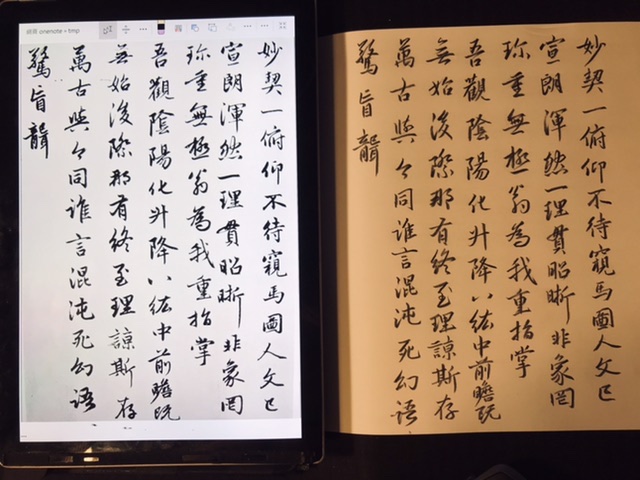 onenote » tmp
妙契一俯仰不待窺馬圖人文已
宣朗渾然一理貫昭晰非象罔
珍重無極翁為我重指掌
吾觀陰陽化升降八紘中前瞻既
無始後際那有終至理諒斯存
萬古與今同誰言混沌死幻語
驚盲聾
妙契一俯仰不待窺馬圖人文已
宣朗渾然一理貫昭晰非象罔
珍重無極翁為我重指掌
吾觀陰陽化升降八紘中前瞻既
無始後際那有終至理諒斯存
萬古與今同誰言混沌死幻語
驚盲聾